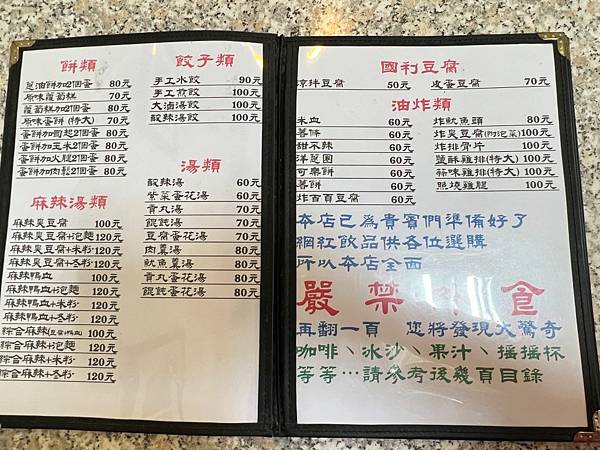 餅類
蔥油餅加2個蛋 80元
原味蘿蔔糕 70元
蘿蔔糕加2個蛋 80元
原味蛋餅(特大) 70元
蛋餅加起司2個蛋 80元
蛋餅加玉米2個蛋 80元
蛋餅加火腿2個蛋 80元
蛋餅加肉鬆2個蛋 80元
麻辣湯類
麻辣臭豆腐 100元
麻辣臭豆腐+泡麵 120元
麻辣臭豆腐+米粉 120元
麻辣臭豆腐+冬粉 120元
麻辣鴨血 100元
麻辣鴨血+泡麵 120元
麻辣鴨血+米粉 120元
麻辣鴨血+冬粉 120元
綜合麻辣(豆腐+鴨血) 100元
綜合麻辣+泡麵 120元
綜合麻辣+米粉 120元
綜合麻辣+冬粉 120元
餃子類
手工水餃 90元
手工煎餃 100元
大滷湯餃 100元
酸辣湯餃 100元
湯類
酸辣湯 60元
紫菜蛋花湯 60元
貢丸湯 70元
餛飩湯 70元
豆腐蛋花湯 70元
肉羹湯 80元
魷魚羹湯 80元
貢丸蛋花湯 80元
餛飩蛋花湯 80元
國利豆腐
涼拌豆腐 50元
皮蛋豆腐 70元
油炸類
米血 60元
薯條 60元
甜不辣 60元
洋蔥圈 60元
可樂餅 60元
薯餅 60元
炸百頁豆腐 60元
炸魷魚頭 80元
炸臭豆腐(附泡菜) 100元
炸排骨片 100元
鹽酥雞排(特大) 100元
椒味雞排(特大) 100元
照燒雞腿 100元
本店已為貴賓們準備好了
網紅飲品供各位選購
所以本店全面
嚴禁外食
再翻一頁 您將發現大驚奇
咖啡、冰沙、果汁、搖搖杯
等等…請參考後幾頁目錄